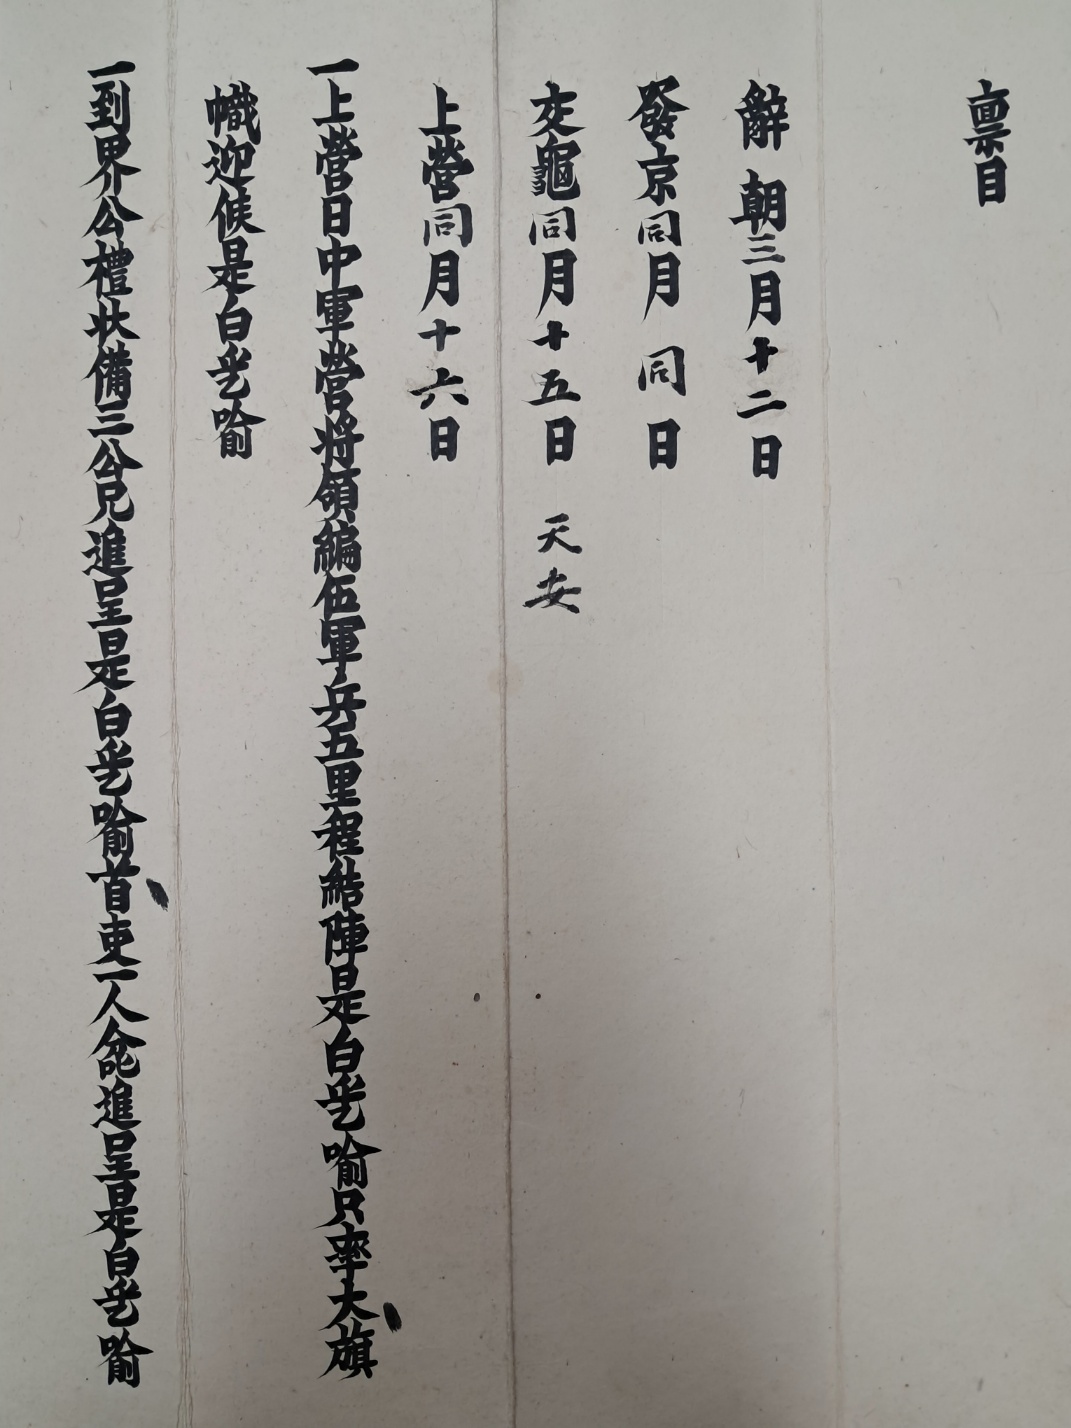 稟目
辭 朝三月十二日
發京同月 同日
交龜同月十五日 天安
上營同月十六日
一上營日中軍營將領編伍軍兵五里程結陣是白乎喩只率大旗
幟迎候是白乎喩
一到界公禮狀備三公兄進呈是白乎喩首吏一人兺進呈是白乎喩